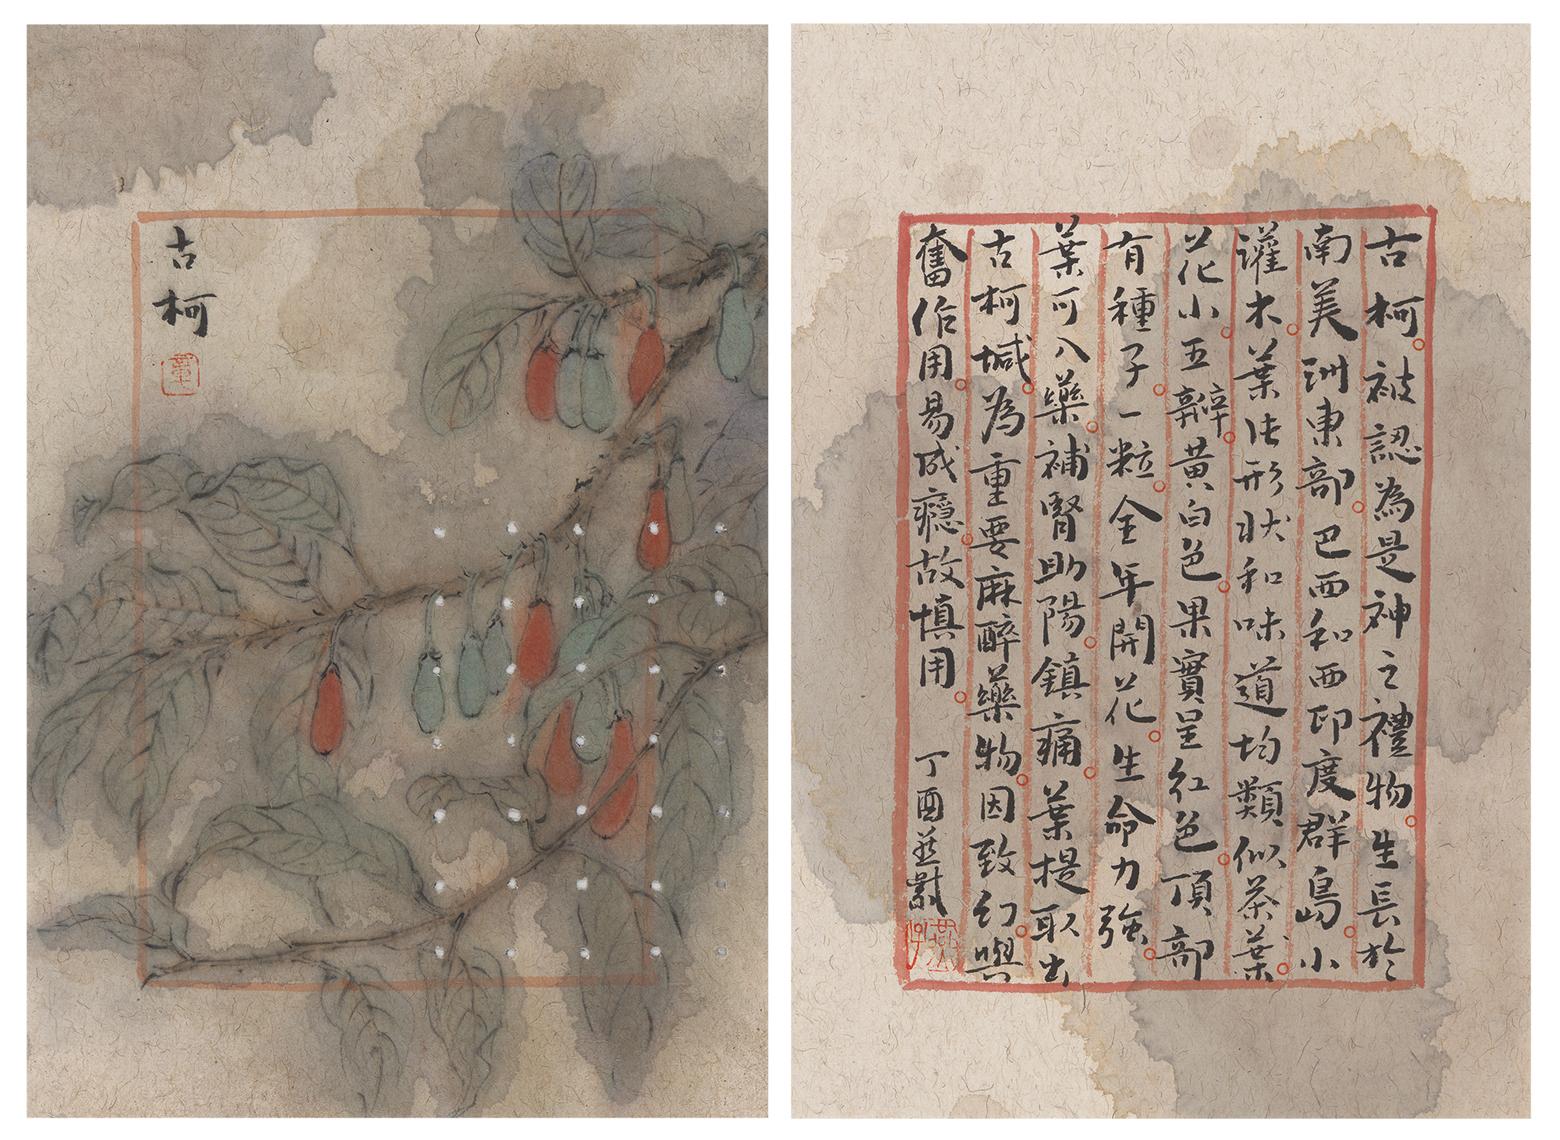 古柯
董
古柯。被認為是神之禮物。生長於
南美洲東部。巴西和西印度群島。小
灌木。葉形狀和味道均類似茶葉。
花小。五瓣。黃白色。果實呈紅色。頂部
有種子。一粒。全年開花。生命力強。
葉可入藥。補腎助陽。鎮痛。葉提取出
古柯堿。為重要麻醉藥物。因致幻。興
奮作用。易成癮。故慎用。丁酉